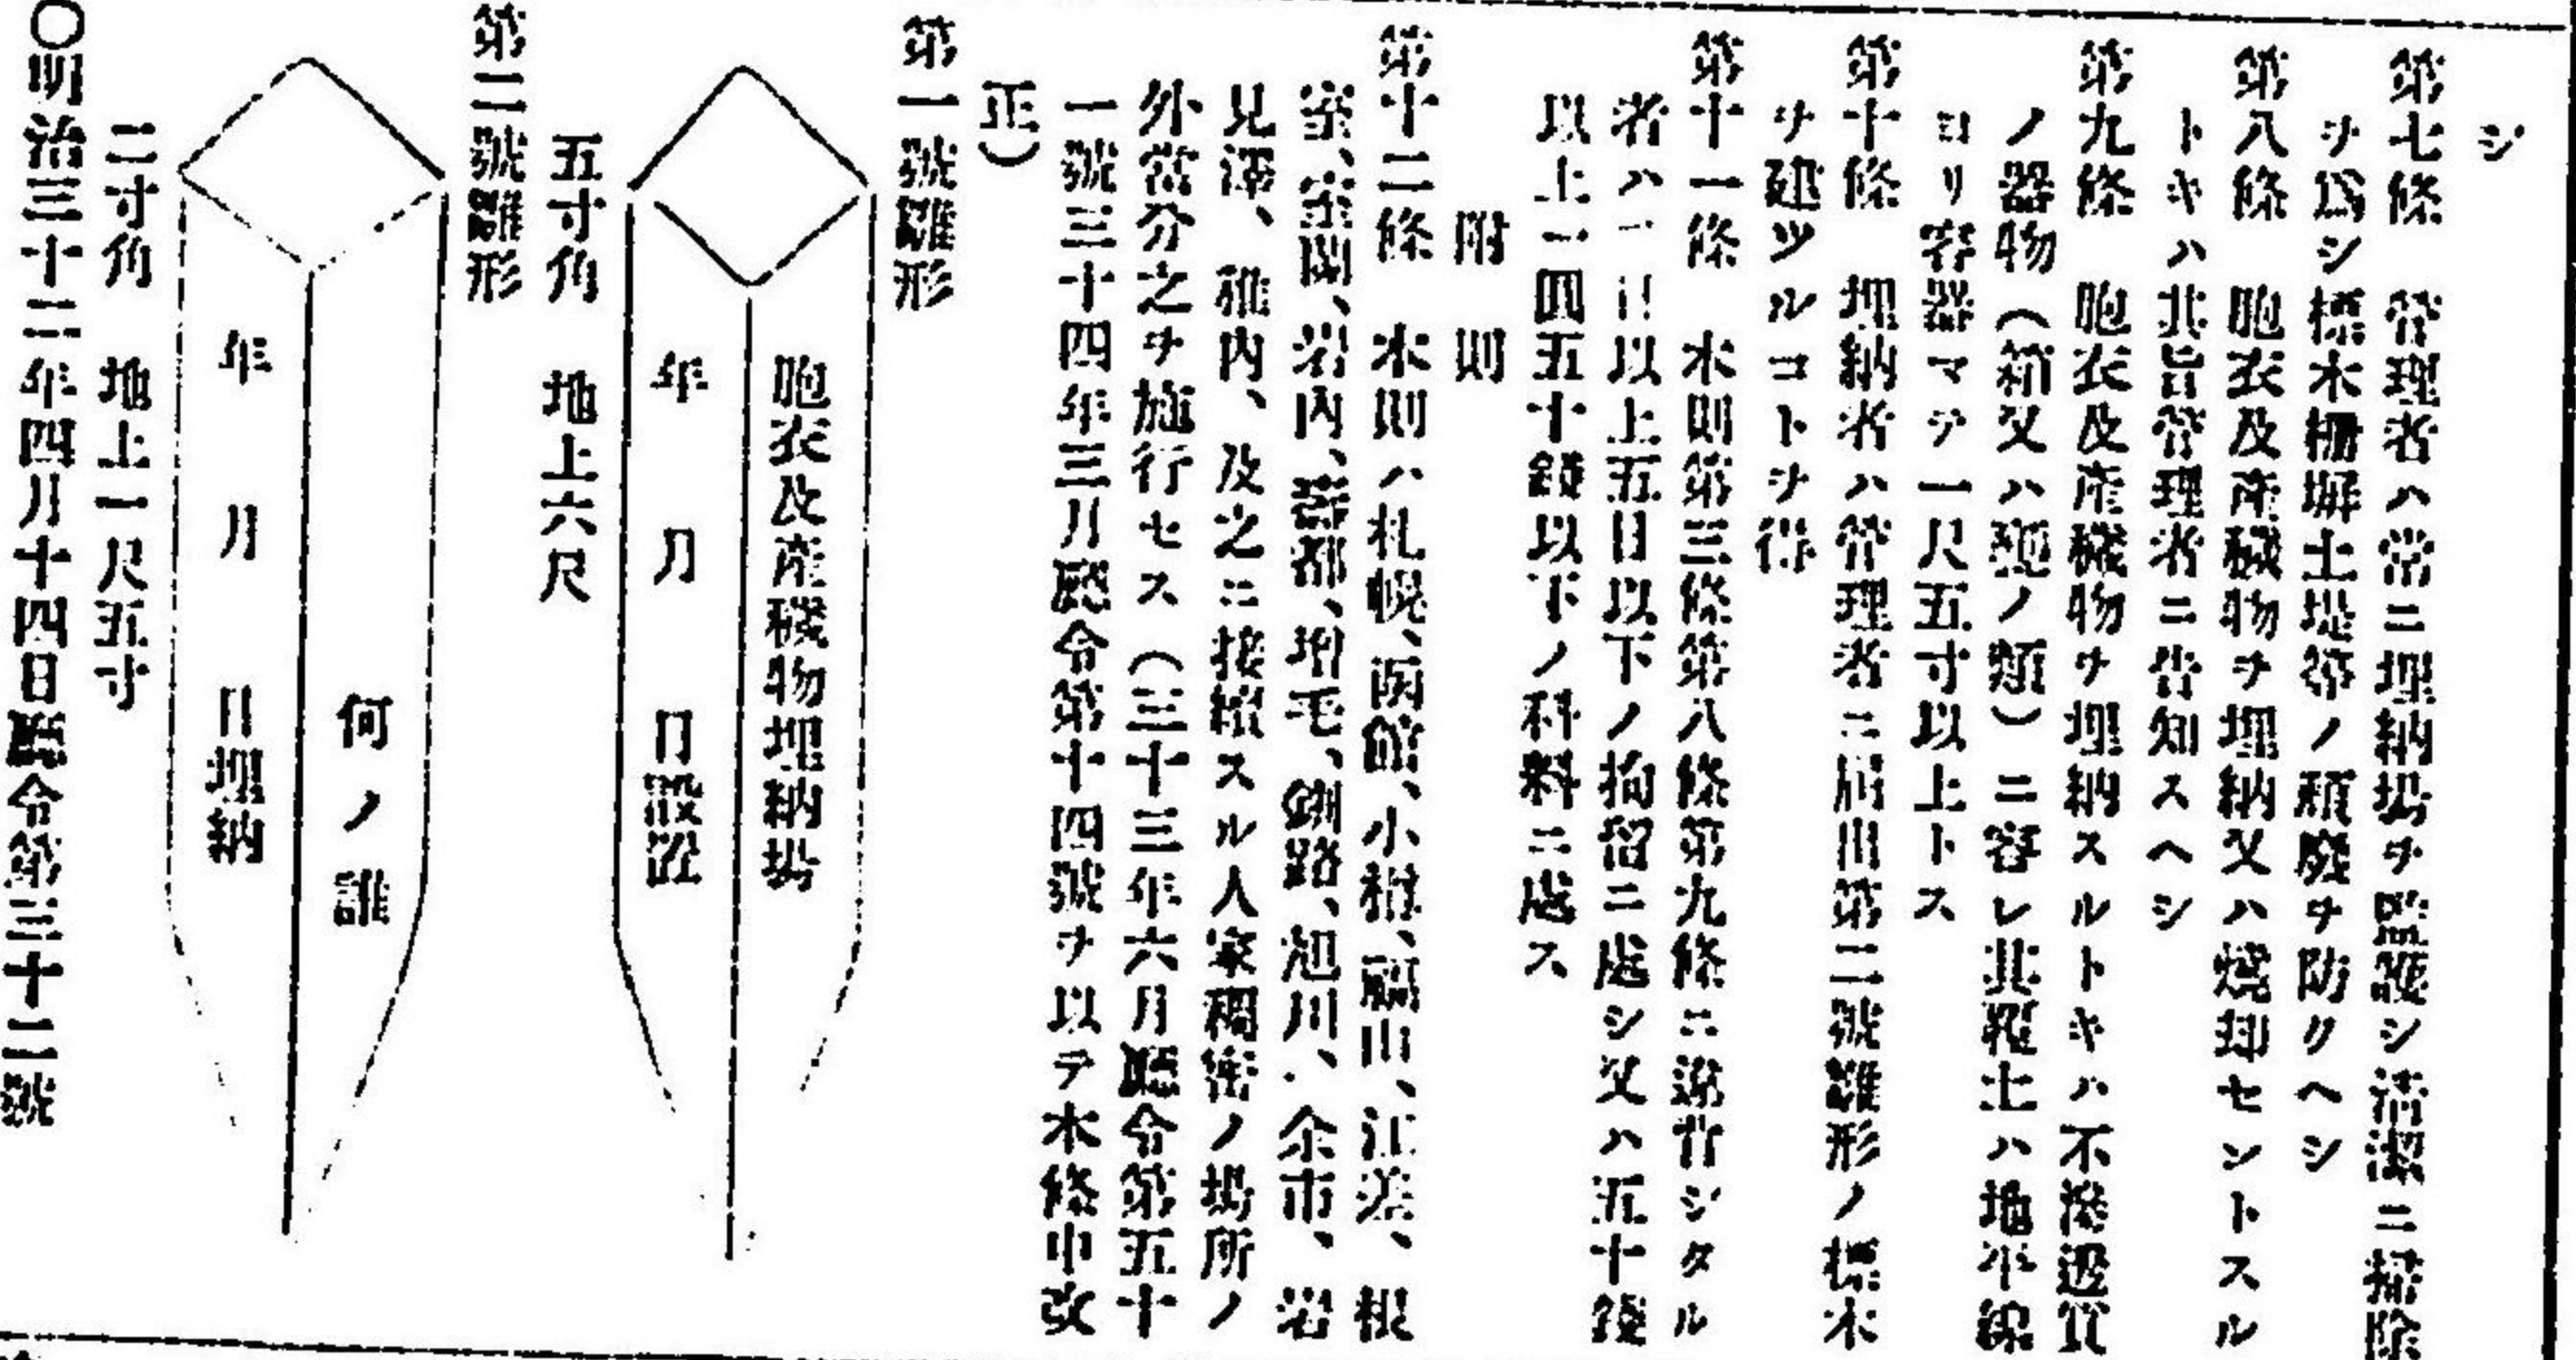 シ
第七條　管理者ハ常ニ埋納場ヲ監護シ清潔ニ掃除
ヲ爲シ標木柵塀土堤等ノ頽廢ヲ防クヘシ
第八條　胞衣及産穢物ヲ埋納又ハ燒却セントスル
トキハ其旨管理者ニ告知スヘシ
第九條　胞衣及産穢物ヲ埋納スルトキハ不滲透質
ノ器物（箱又ハ甕ノ類）ニ容レ其覆土ハ地平線
ヨリ容器マテ一尺五寸以上トス
第十條　埋納者ハ管理者ニ届出第二號雛形ノ標木
ヲ建ツルコトヲ得
第十一條　本則第三條第八條第九條ニ違背シタル
者ハ一日以上五日以下ノ拘留ニ處シ又ハ五十錢
以上一圓五十錢以下ノ科料ニ處ス
附則
第十二條　本則ハ札幌、函館、小樽、福山、江差、根
室、室蘭、岩内、壽都、増毛、釧路、旭川、余市、岩
見澤、稚内、及之ニ接續スル人家稠密ノ場所ノ
外當分之ヲ施行セス（三十三年六月廳令第五十
一號三十四年三月廳令第十四號ヲ以テ本條中改
正）
第一號雛形
胞衣及産穢物埋納場
年　月　日設置
五寸角　地上六尺
第二號雛形
何ノ誰
年　月　日埋納
二寸角　地上一尺五寸
〇明治三十二年四月十四日廳令第三十二號